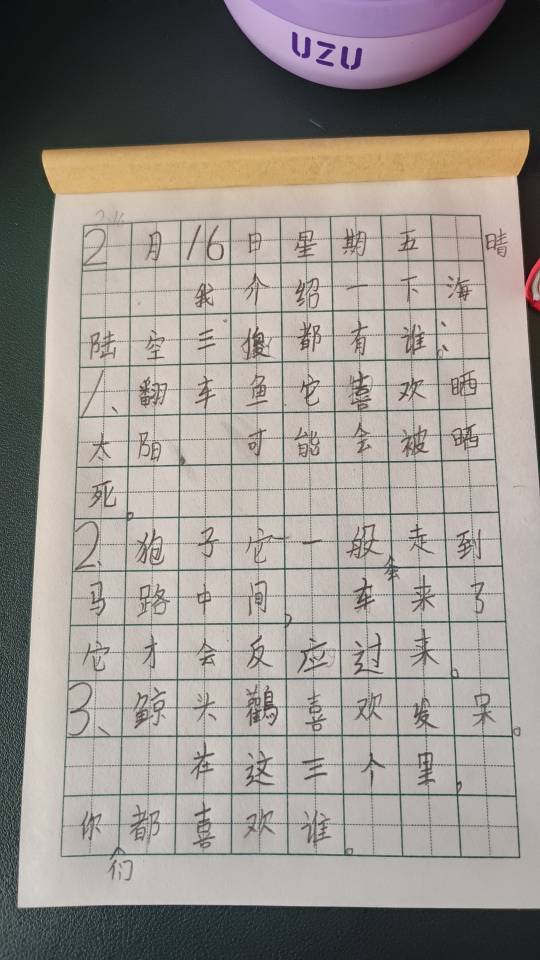 UZU
2月16日星期五 晴
我介绍一下海
陆空三傻都有谁:。
1、翻车鱼它喜欢晒
太阳、可能会被晒
死。
2、狍子它一般会走到
马路中间,车来了
它才会反应过来。
3、鲸头鸛喜欢发呆。
在这三个里,
你们都喜欢谁。